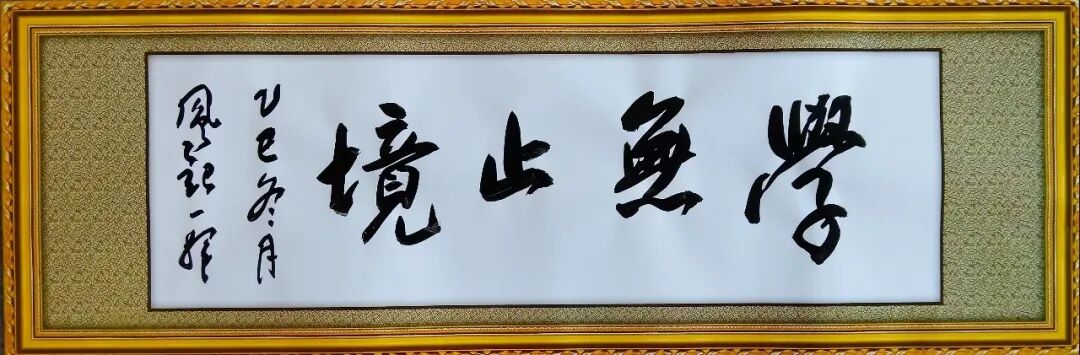 學無止境
乙巳冬月
風記一輝